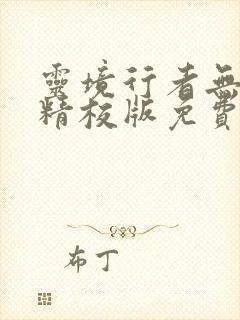 靈境行者無
精校版免費
布丁